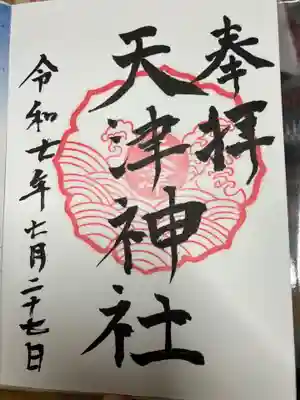 奉拝
天津神社
令和七年七月二十七日